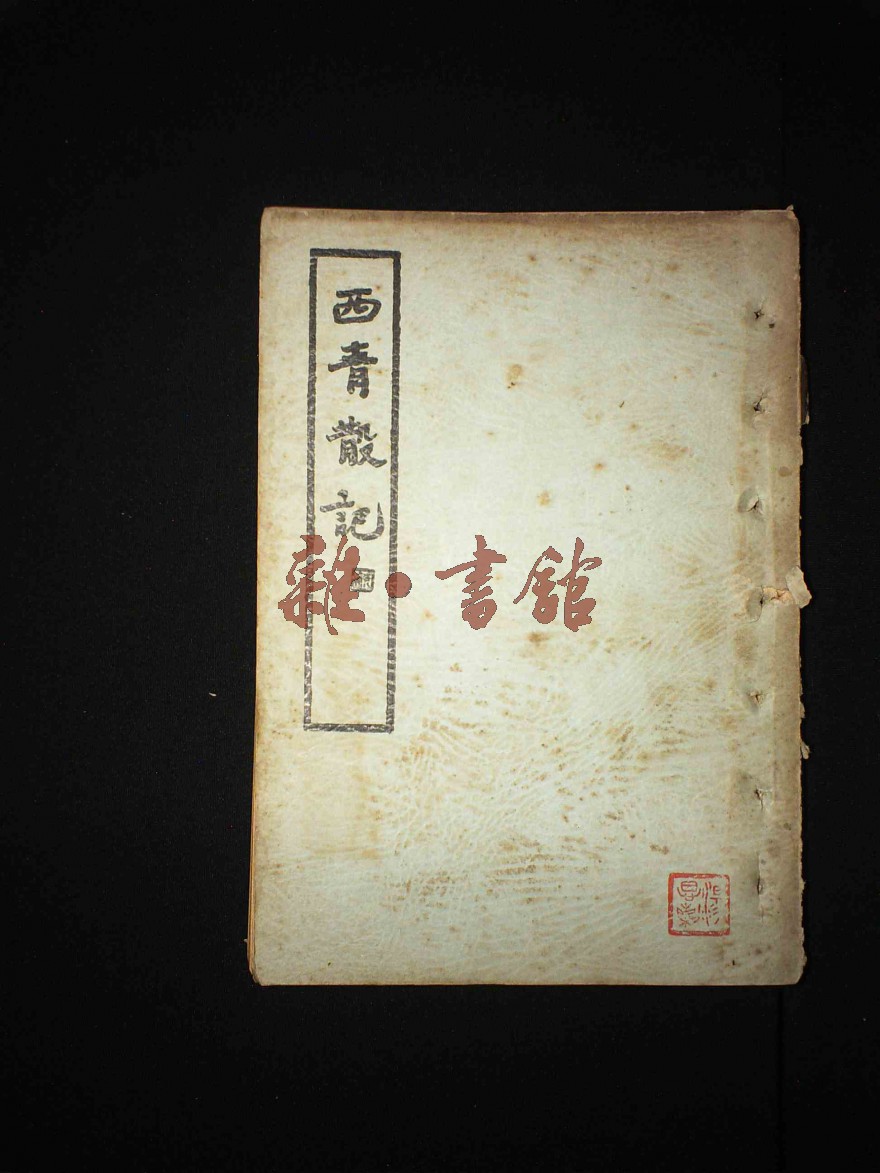 西青散記
雜·書館